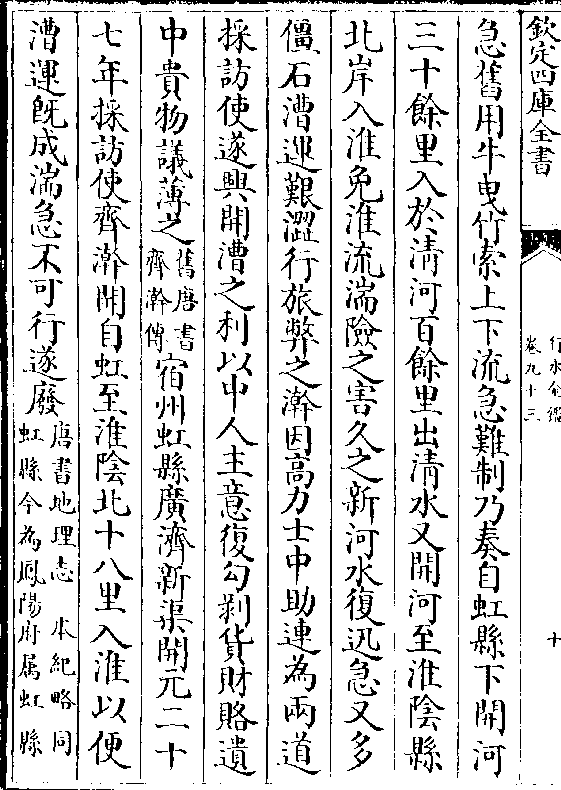 欽定四庫全書
行水金鑑
卷九十三
十
急舊用牛曳竹索上下流急難制乃奏自虹縣下開河
三十餘里入於清河百餘里出清水又開河至淮陰縣
北岸入淮免淮流湍險之害久之新河水復迅急又多
僵石漕運艱澀行旅弊之澣因高力士中助連為兩道
採訪使遂興開漕之利以中人主意復勾剥貨財賂遺
中貴物議薄之舊唐書齊澣傳宿州虹縣廣濟新渠開元二十
七年採訪使齊澣開自虹至淮陰北十八里入淮以便
漕運既成湍急不可行遂廢唐書地理志 本紀略同虹縣今為鳳陽府属虹縣